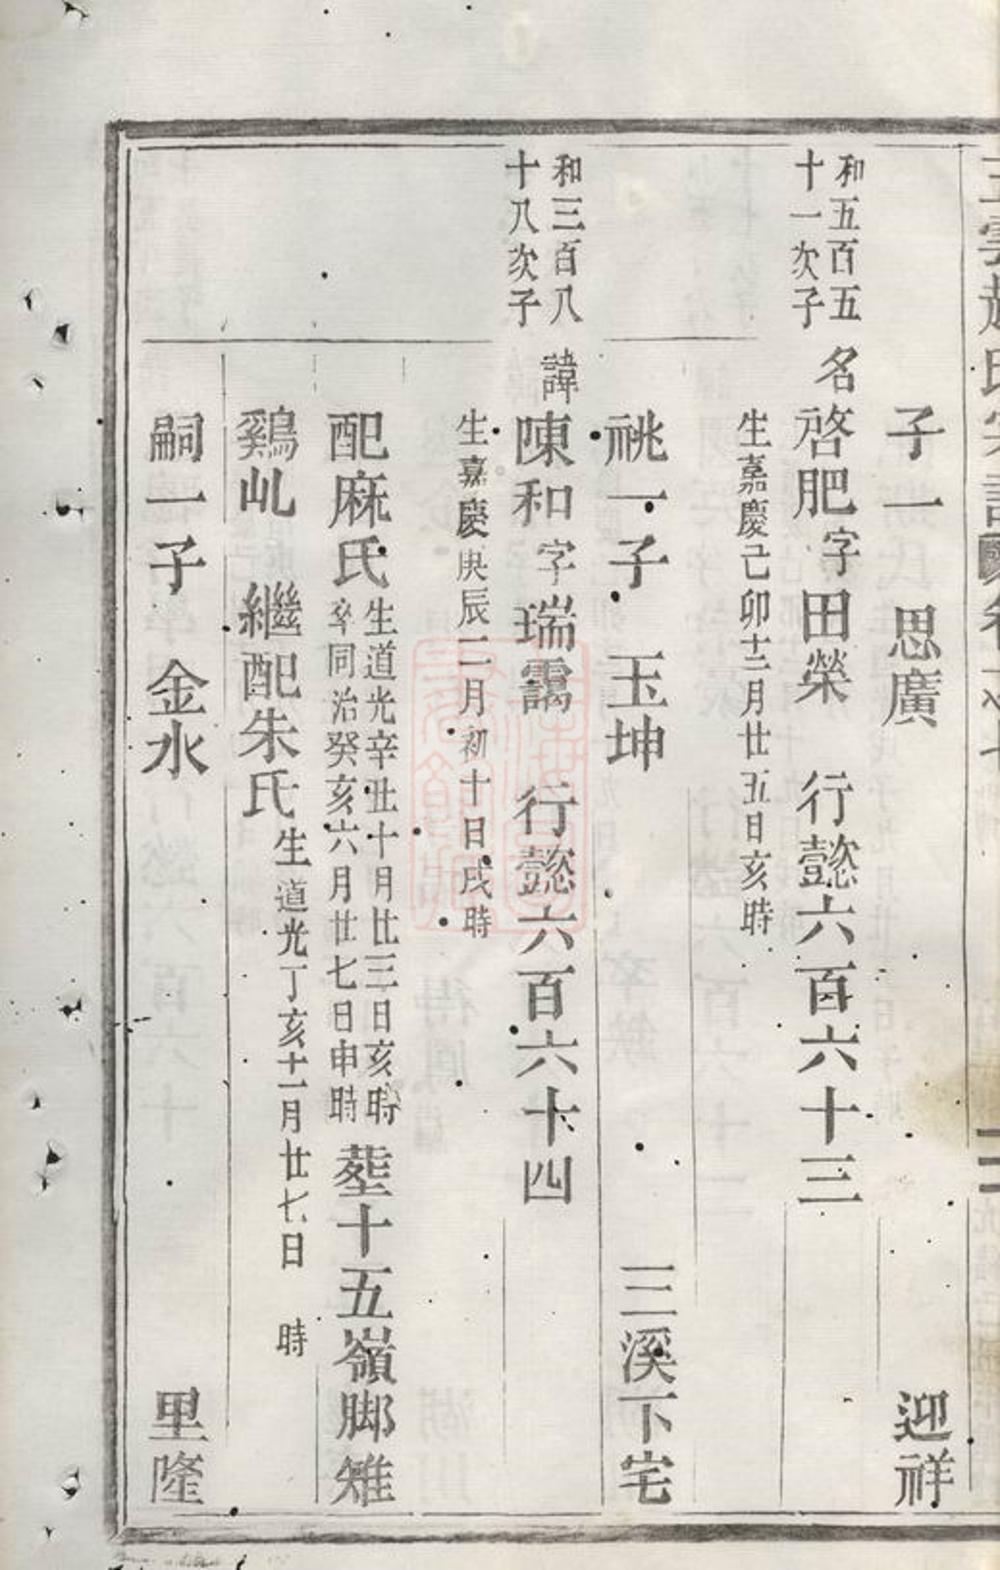 子一　思廣　迎祥
和五百五
十一次子
名啓肥字田榮　行懿六百六十三
生嘉慶己卯十二月廿五日亥時
祧一子　玉坤　三溪下宅
和三百八
十八次子
諱陳和字瑞靄　行懿六百六十四
生嘉慶庚辰二月初十日戌時
配麻氏
生道光辛丑十月廿三日亥時
卒同治癸亥六月廿七日申時
塟十五嶺脚雉
鷄乢　繼配朱氏生道光丁亥十一月廿七日　時
嗣一子　金水　里隆